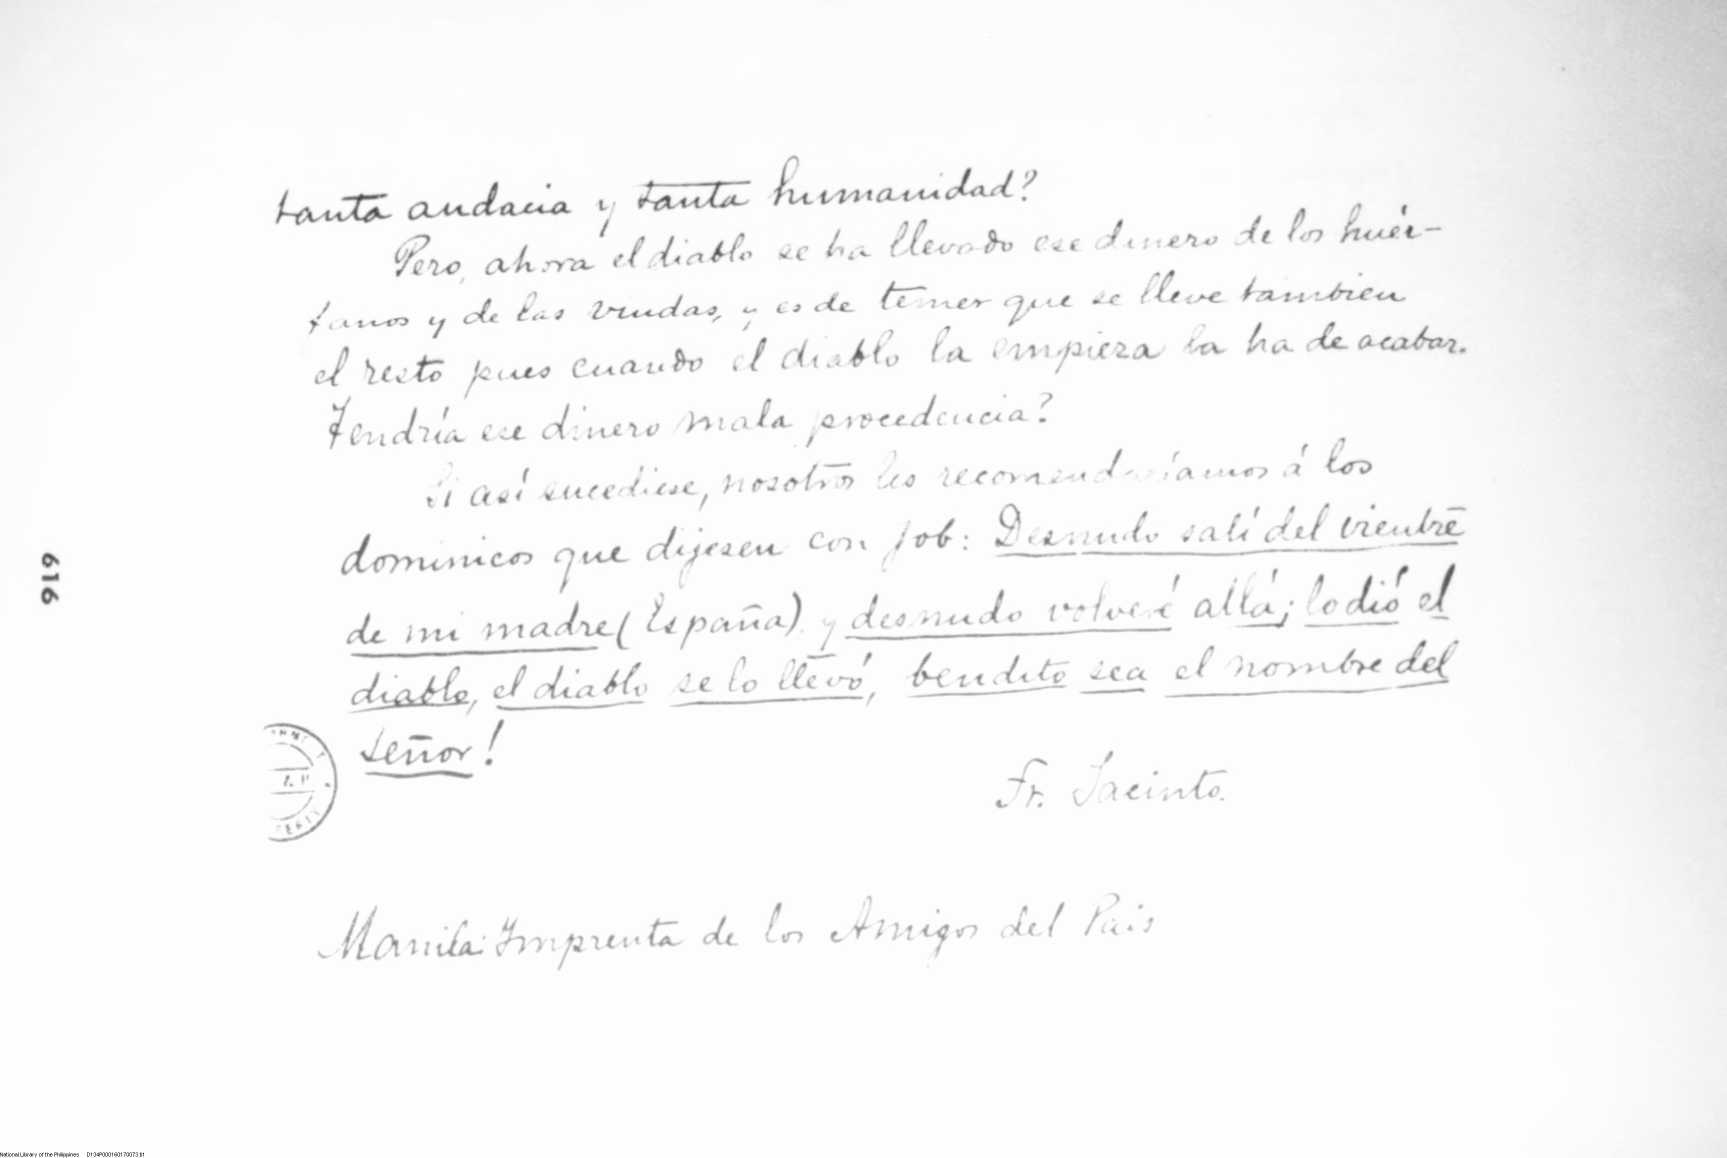 tanta audacia y tanta humanidad?
Pero, ahora el diablo se ha llevado ese dinero de los huér-
fanos y de las viudas, y es de temer que se lleve tambien
el resto pues cuando el diablo la empieza la ha de acabar.
Tendría ese dinero mala procedencia?
Si así sucediese, nosotros les recomendaríamos á los
dominicos que dijesen con Job: Desnudo salí del vientre
de mi madre (España) y desnudo volveré allá; lo dió el
diablo, el diablo se lo llevó, bendito sea el nombre del
señor!
Fr. Jacinto.
Manila: Imprenta de los Amigos del Pais
616
National Library of the Philippines D134P000160170073.tif